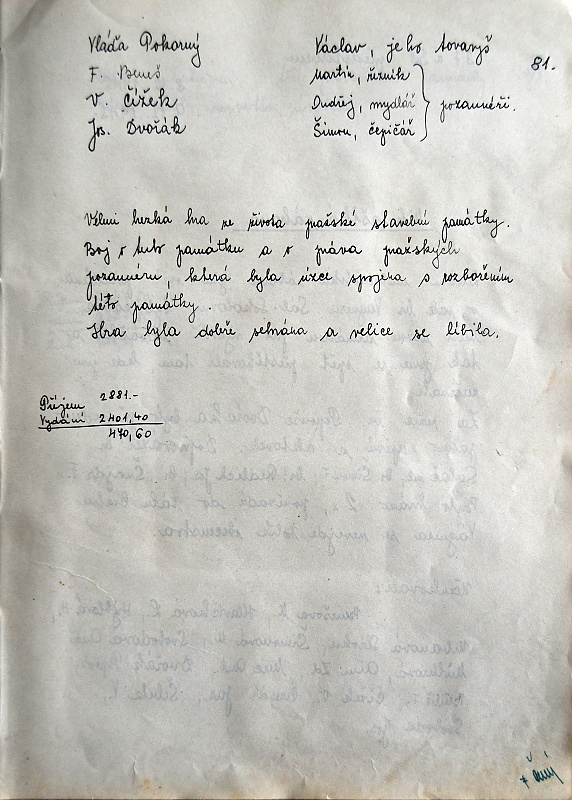 Vláďa Pokorný Václav, jeho tovaryš
81.
F. Beneš Martin, řezník
V. Čížek Ondřej, mydlář } pozounéři.
Jos. Dvořák Šimon, čepičář
Velmi hezká hra ze života pražské stavební památky.
Boj o tuto památku a o práva pražských
pozounérů, která byla úzce spojena s rozbořením
této památky.
Hra byla dobře sehrána a velice se líbila.
Příjem 2881.-
Vydání 2401,40
470,60